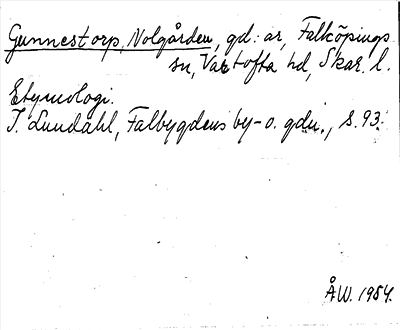 Gunnestorp, Nolgården, gd:ar, Falköpings
sn, Vartofta hd, Skar. l.
Etymologi.
I. Lundahl, Falbygdens by- o. gdn., s. 93.
ÅW. 1954.